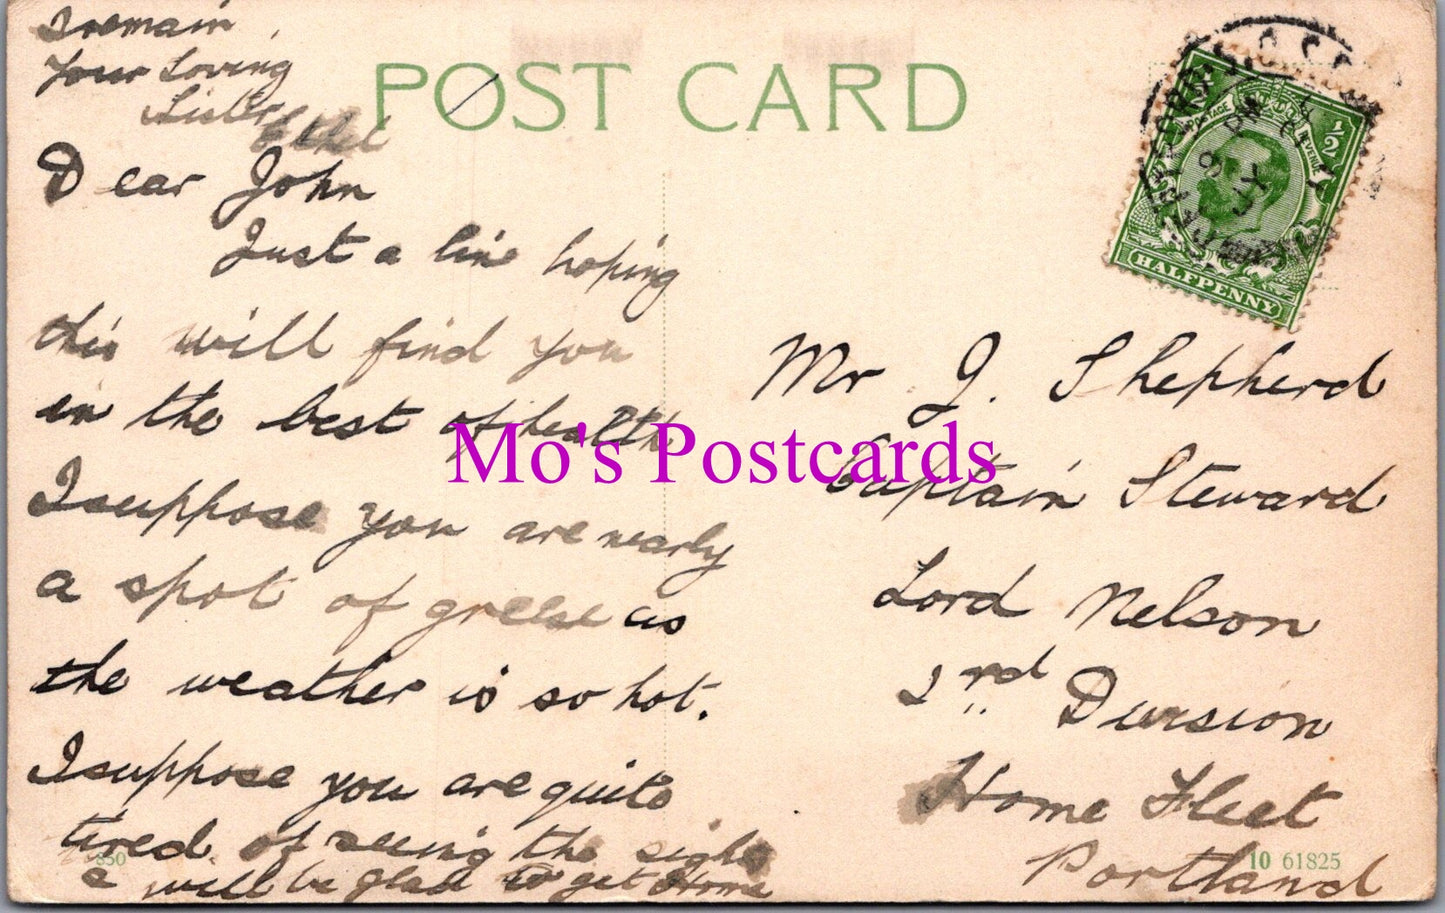 I remain
Your Loving
Sister
Ethel
POST CARD
Dear John
Just a line hoping
this will find you
in the best of health
I suppose you are nearly
a spot of greese as
the weather is so hot.
I suppose you are quite
tired of seeing the sights
& will be glad to get Home
Mr J. Shepherd
Captain Steward
Lord Nelson
2rd Division
Home Fleet
Portland
POSTAGE REVENUE
1/2
HALFPENNY
9 JY
850
10 61825
Mo's Postcards